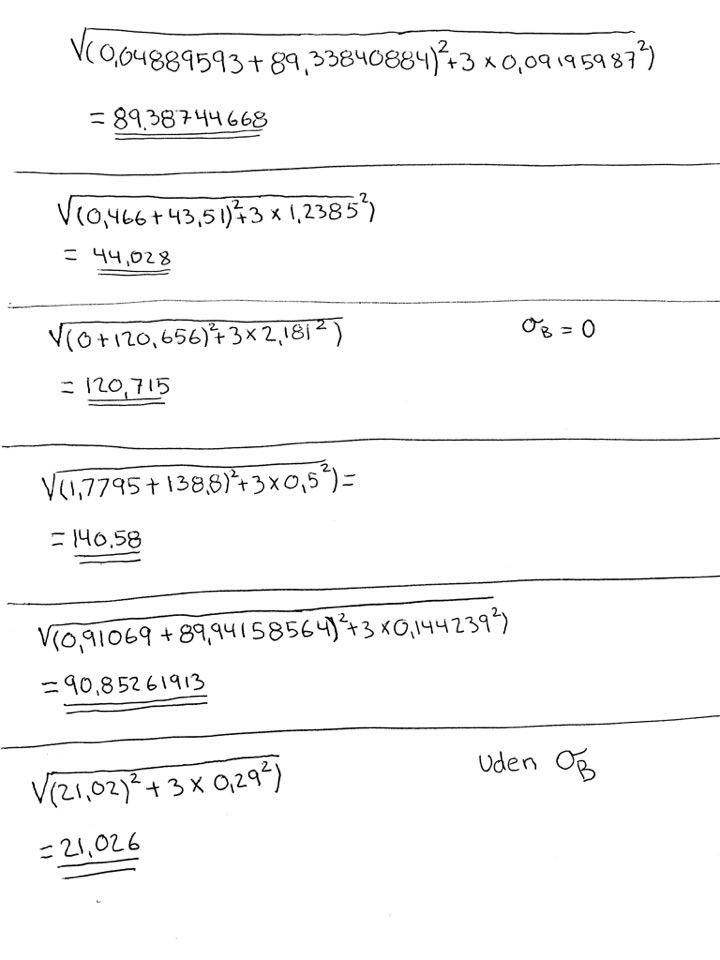 √(0,04889593 + 89,33840884)² + 3 × 0,09195987²)
= 89.38744668
√(0,466 + 43,51)² + 3 × 1,2385²)
= 44,028
√(0 + 120,656)² + 3 × 2,181²) σB = 0
= 120,715
√(1,7795 + 138,8)² + 3 × 0,5²) =
= 140.58
√(0,91069 + 89,94158564)² + 3 × 0,144239²)
= 90,85261913
√(21,02)² + 3 × 0,29²) Uden σB
= 21,026